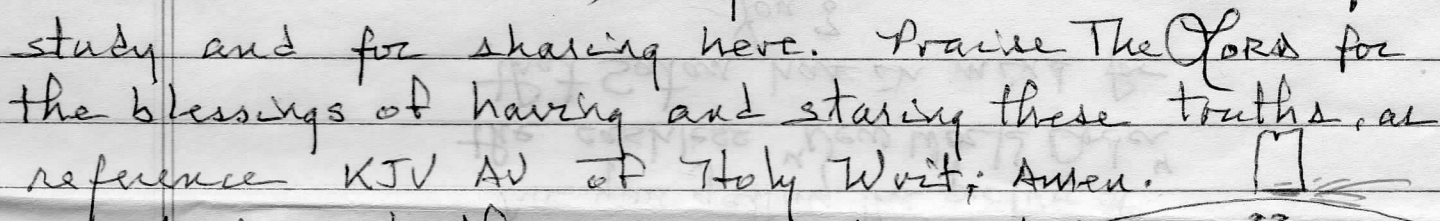 study and for sharing here. Praise The LORD for
the blessings of having and staring these truths, as
reference KJV AV of Holy Writ; Amen.